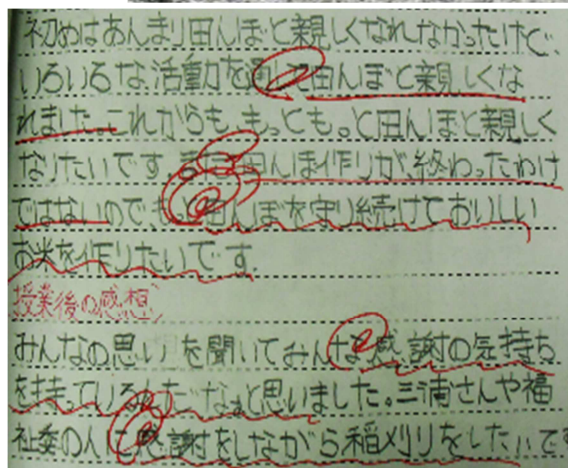 初めはあんまり田んぼと親しくなれなかったけど、
いろいろな活動を通して田んぼと親しくな
れました。これからも、もっともっと田んぼと親しく
なりたいです。田んぼ作りが終わったわけ
ではないので、もっと田んぼを守り続けておいしい
お米を作りたいです。
授業後の感想
みんなの思いを聞いてみんな感謝の気持ち
を持っているんだなぁと思いました。三浦さんや福
祉委の人に感謝をしながら稲メリリをしたいです